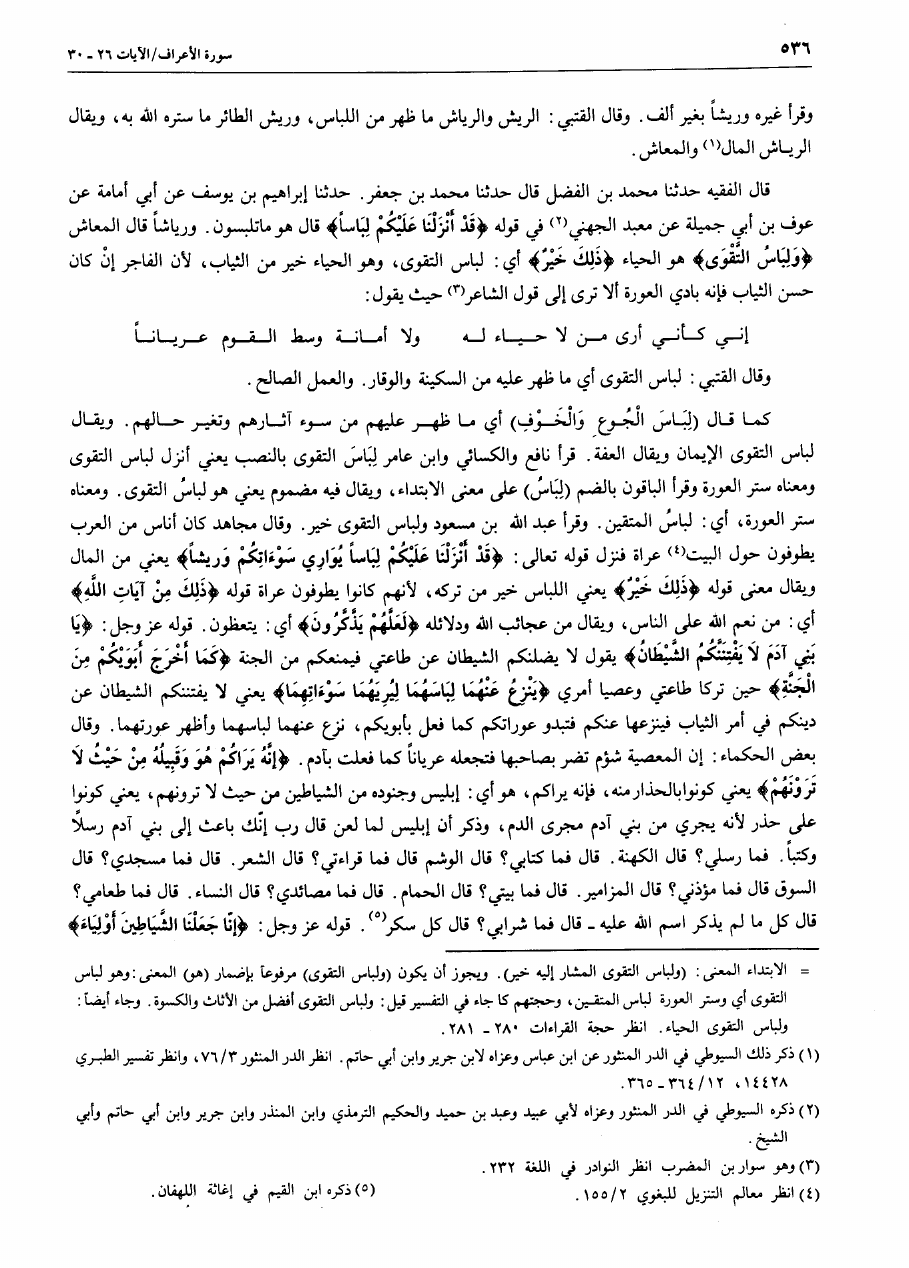 ٥٣٦
سورة الأعراف/الآيات ٢٦ ـ ٣٠
وقرأ غيره وريشاً بغير ألف. وقال القتبي: الريش والرياش ما ظهر من اللباس، وريش الطائر ما ستره الله به، ويقال
الرياش المال(١) والمعاش.
قال الفقيه حدثنا محمد بن الفضل قال حدثنا محمد بن جعفر. حدثنا إبراهيم بن يوسف عن أبي أمامة عن
عوف بن أبي جميلة عن معبد الجهني(٢) في قوله ﴿قَدْ أَنْزَلْنَا عَلَيْكُمْ لِبَاساً﴾ قال هو ماتلبسون. ورياشاً قال المعاش
﴿وَلِبَاسُ التَّقْوَى﴾ هو الحياء ﴿ذَلِكَ خَيْرٌ﴾ أي: لباس التقوى، وهو الحياء خير من الثياب، لأن الفاجر إنْ كان
حسن الثياب فإنه بادي العورة ألا ترى إلى قول الشاعر(٣) حيث يقول:
إنـي كـأنـي أرى مـن لا حـيـاء لـه ولا أمـانـة وسط الـقـوم عـريـانـاً
وقال القتبي: لباس التقوى أي ما ظهر عليه من السكينة والوقار. والعمل الصالح.
كما قال (لِبَاسَ الْجُوعِ وَالْخَوْفِ) أي ما ظهر عليهم من سوء آثارهم وتغير حالهم. ويقال
لباس التقوى الإيمان ويقال العفة. قرأ نافع والكسائي وابن عامر لِبَاسَ التقوى بالنصب يعني أنزل لباس التقوى
ومعناه ستر العورة وقرأ الباقون بالضم (لِبَاسُ) على معنى الابتداء، ويقال فيه مضموم يعني هو لباسُ التقوى. ومعناه
ستر العورة، أي: لباسُ المتقين. وقرأ عبد الله بن مسعود ولباس التقوى خير. وقال مجاهد كان أناس من العرب
يطوفون حول البيت(٤) عراة فنزل قوله تعالى: ﴿قَدْ أَنْزَلْنَا عَلَيْكُمْ لِبَاساً يُوَارِي سَوْءَاتِكُمْ وَرِيشاً﴾ يعني من المال
ويقال معنى قوله ﴿ذَلِكَ خَيْرٌ﴾ يعني اللباس خير من تركه، لأنهم كانوا يطوفون عراة قوله ﴿ذَلِكَ مِنْ آيَاتِ اللَّهِ﴾
أي: من نعم الله على الناس، ويقال من عجائب الله ودلائله ﴿لَعَلَّهُمْ يَذَّكَّرُونَ﴾ أي: يتعظون. قوله عز وجل: ﴿يَا
بَنِي آدَمَ لَا يَفْتِنَنَّكُمُ الشَّيْطَانُ﴾ يقول لا يضلنكم الشيطان عن طاعتي فيمنعكم من الجنة ﴿كَمَا أَخْرَجَ أَبَوَيْكُمْ مِنَ
الْجَنَّةِ﴾ حين تركا طاعتي وعصيا أمري ﴿يَنْزِعُ عَنْهُمَا لِبَاسَهُمَا لِيُرِيَهُمَا سَوْءَاتِهِمَا﴾ يعني لا يفتننكم الشيطان عن
دينكم في أمر الثياب فينزعها عنكم فتبدو عوراتكم كما فعل بأبويكم، نزع عنهما لباسهما وأظهر عورتهما. وقال
بعض الحكماء: إن المعصية شؤم تضر بصاحبها فتجعله عرياناً كما فعلت بآدم. ﴿إِنَّهُ يَرَاكُمْ هُوَ وَقَبِيلُهُ مِنْ حَيْثُ لَا
تَرَوْنَهُمْ﴾ يعني كونوابالحذارمنه، فإنه يراكم، هو أي: إبليس وجنوده من الشياطين من حيث لا ترونهم، يعني كونوا
على حذر لأنه يجري من بني آدم مجرى الدم، وذكر أن إبليس لما لعن قال رب إنّك باعث إلى بني آدم رسلاً
وكتباً. فما رسلي؟ قال الكهنة. قال فما كتابي؟ قال الوشم قال فما قراءتي؟ قال الشعر. قال فما مسجدي؟ قال
السوق قال فما مؤذني؟ قال المزامير. قال فما بيتي؟ قال الحمام. قال فما مصائدي؟ قال النساء. قال فما طعامي؟
قال كل ما لم يذكر اسم الله عليه ـ قال فما شرابي؟ قال كل سكر(٥). قوله عز وجل: ﴿إِنَّا جَعَلْنَا الشَّيَاطِينَ أَوْلِيَاءَ﴾
= الابتداء المعنى: (ولباس التقوى المشار إليه خير). ويجوز أن يكون (ولباس التقوى) مرفوعاً بإضمار (هو) المعنى: وهو لباس
التقوى أي وستر العورة لباس المتقين، وحجتهم كا جاء في التفسير قيل: ولباس التقوى أفضل من الأثاث والكسوة. وجاء أيضاً:
ولباس التقوى الحياء. انظر حجة القراءات ٢٨٠ ـ ٢٨١.
(١) ذكر ذلك السيوطي في الدر المنثور عن ابن عباس وعزاه لابن جرير وابن أبي حاتم. انظر الدر المنثور ٧٦/٣، وانظر تفسير الطبري
١٤٤٢٨، ٣٦٤/١٢ ـ ٣٦٥.
(٢) ذكره السيوطي في الدر المنثور وعزاه لأبي عبيد وعبد بن حميد والحكيم الترمذي وابن المنذر وابن جرير وابن أبي حاتم وأبي
الشيخ.
(٣) وهو سوار بن المضرب انظر النوادر في اللغة ٢٣٢.
(٤) انظر معالم التنزيل للبغوي ١٥٥/٢.
(٥) ذكره ابن القيم في إغاثة اللهفان.